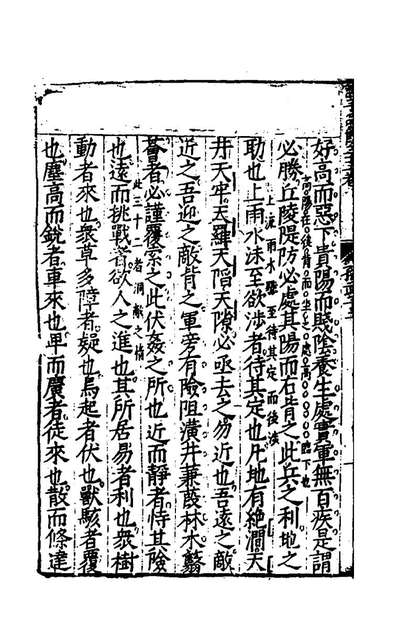 好高而惡下貴陽而賤陰養生處實軍無百疾是謂
必勝丘陵隄防必處其陽而右背之此兵之利地之
上流雨水驟至待其定而後涉
助也上雨水沫至欲涉者待其定也凡地有絕澗天
井天牢天羅天陷天隙必亟去之勿近也吾遠之敵
近之吾迎之敵背之軍旁有險阻潢井蒹葭林木蘙
薈者必謹覆索之此伏姦之所也近而靜者恃其險
此三十二者洞敵之情
也遠而挑戰者欲人之進也其所居易者利也衆樹
動者來也衆草多障者疑也鳥起者伏也獸駭者覆
也塵高而銳者車來也卑而廣者徒來也散而條達